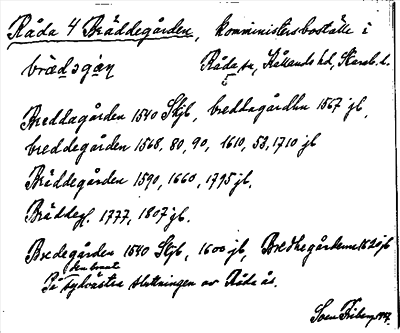 Råda 4 Bräddegården, komministersboställe i
brædəgán Råda sn, Kållands hd, Skarab. l.
Breddagården 1540 Skjb, breddagårdhn 1567 jb,
breddegården 1568, 80, 90, 1610, 53, 1710 jb
Bräddegården 1590, 1660, 1795 jb.
Bräddeg. 1777, 1807 jb.
Bredegården 1540 Skjb, 1600 jb, Bredhegårdenn 1620 jb
På sydvästra sluttningen av Råda ås.
Sven Friberg